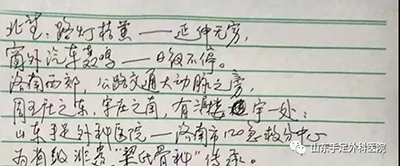 北望：路灯橙黄——延伸无穷，
窗外汽车轰鸣——日夜不停。
济南西部，公路交通大动脉之旁，
周王庄之东，宇庄之南，有楼宇一处：
山东手足外科医院——济南市120急救分中心
为省级非遗“梁氏骨科”传承。
山东手足外科医院